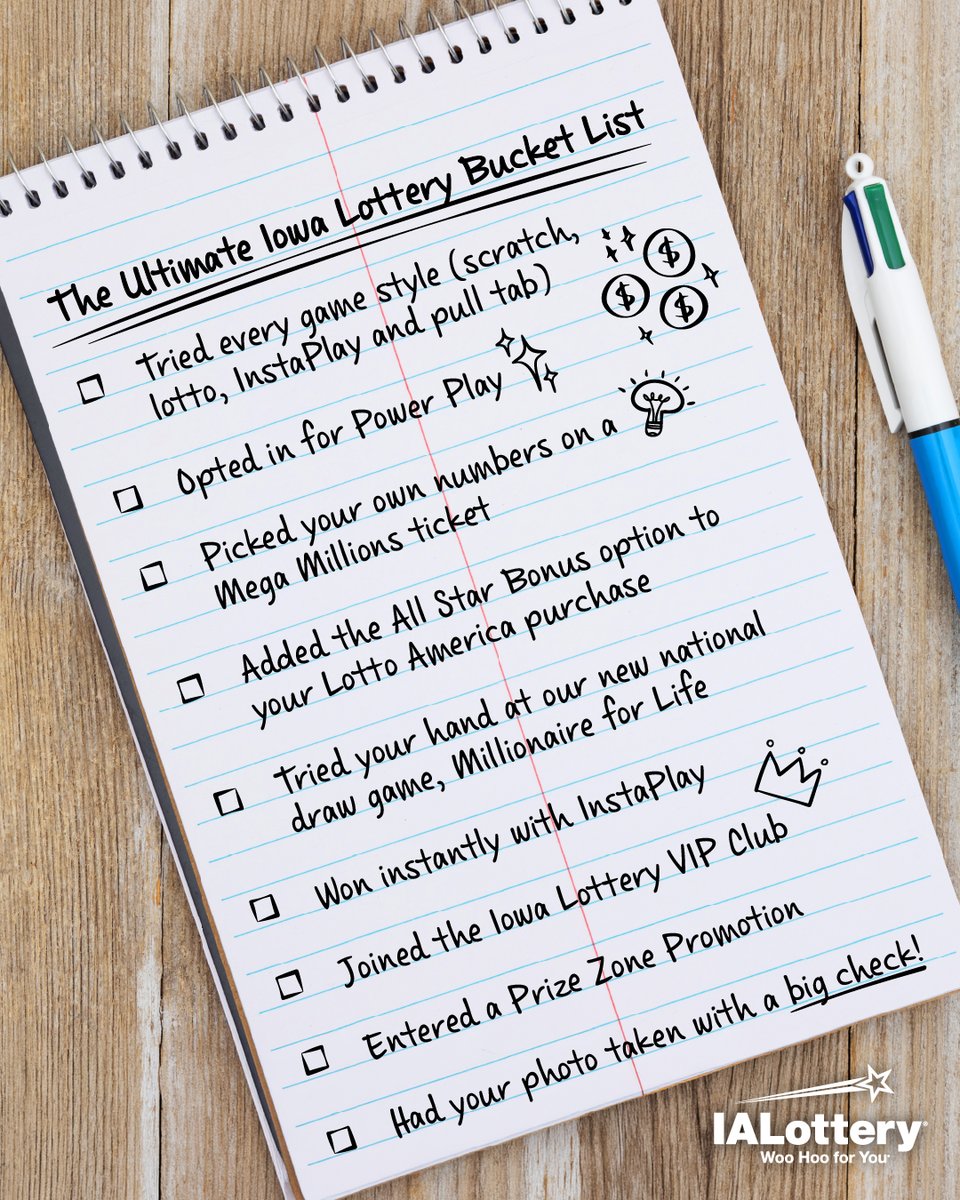 The Ultimate Iowa Lottery Bucket List
Tried every game style (scratch,
lotto, InstaPlay and pull tab)
Opted in for Power Play
Picked your own numbers on a
Mega Millions ticket
Added the All Star Bonus option to
your Lotto America purchase
Tried your hand at our new national
draw game, Millionaire for Life
Won instantly with InstaPlay
Joined the Iowa Lottery VIP Club
Entered a Prize Zone Promotion
Had your photo taken with a big check!
IALottery®
Woo Hoo for You®